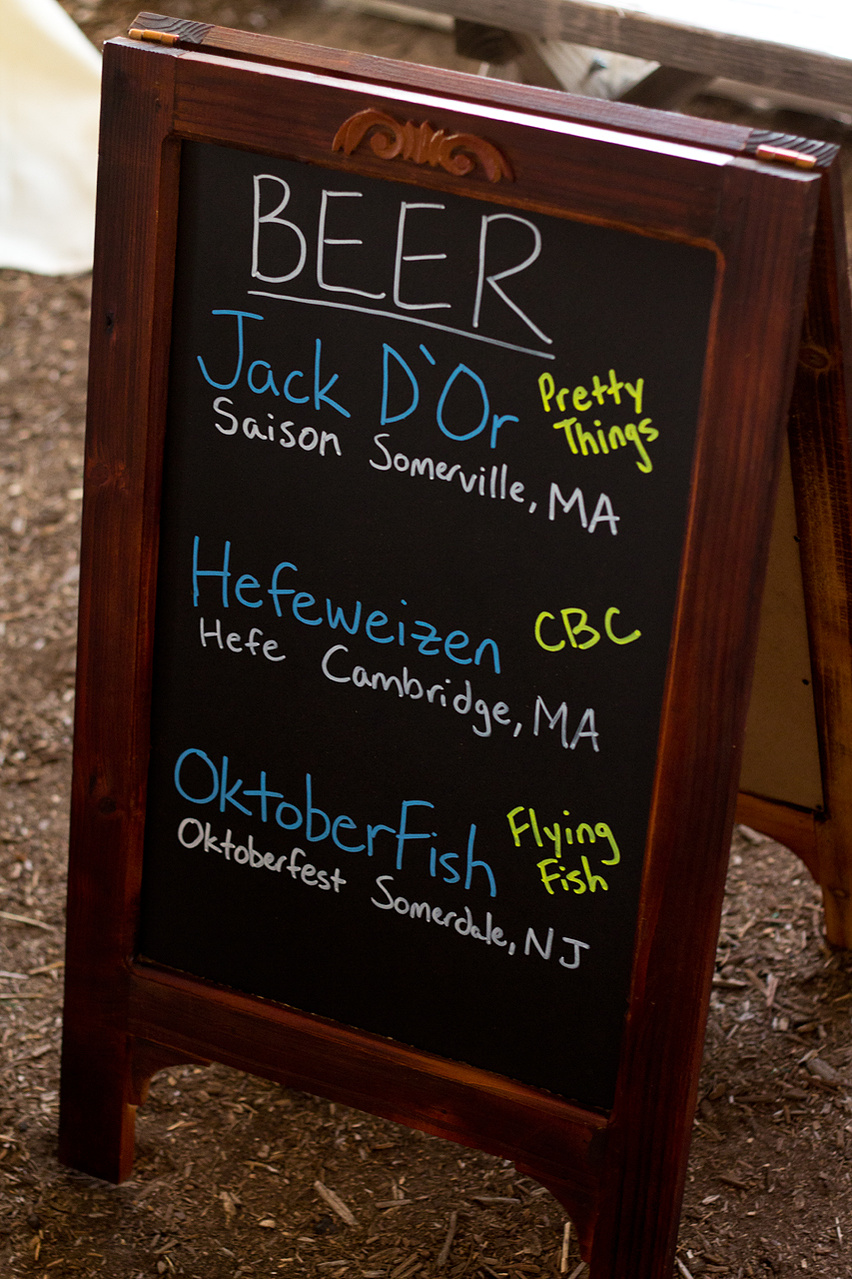 BEER
Jack D`Or Pretty Things
Saison Somerville, MA
Hefeweizen CBC
Hefe Cambridge, MA
OktoberFish Flying Fish
Oktoberfest Somerdale, NJ